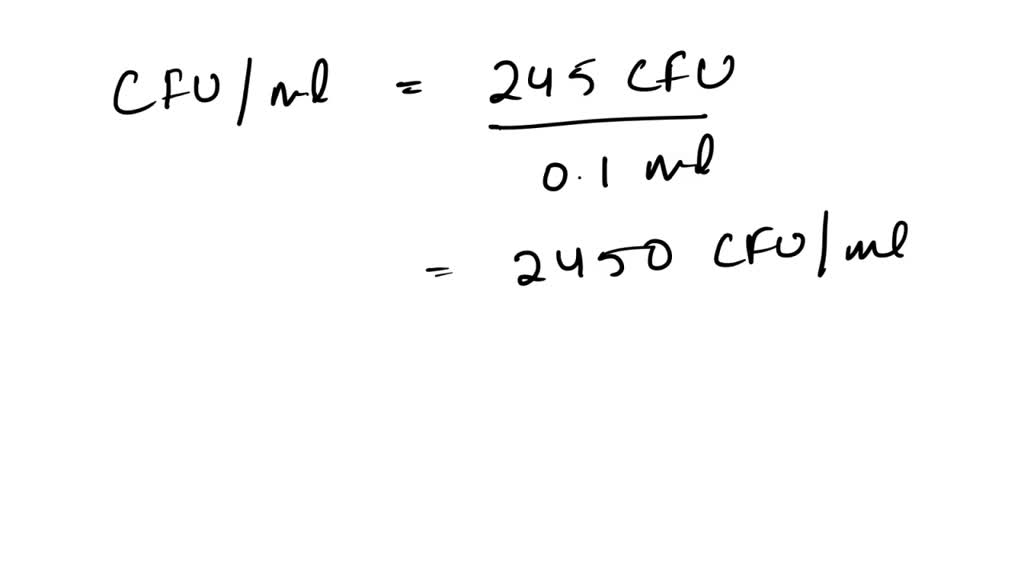 CFU/ml = 245 CFU
0.1 ml
= 2450 CFU/ml